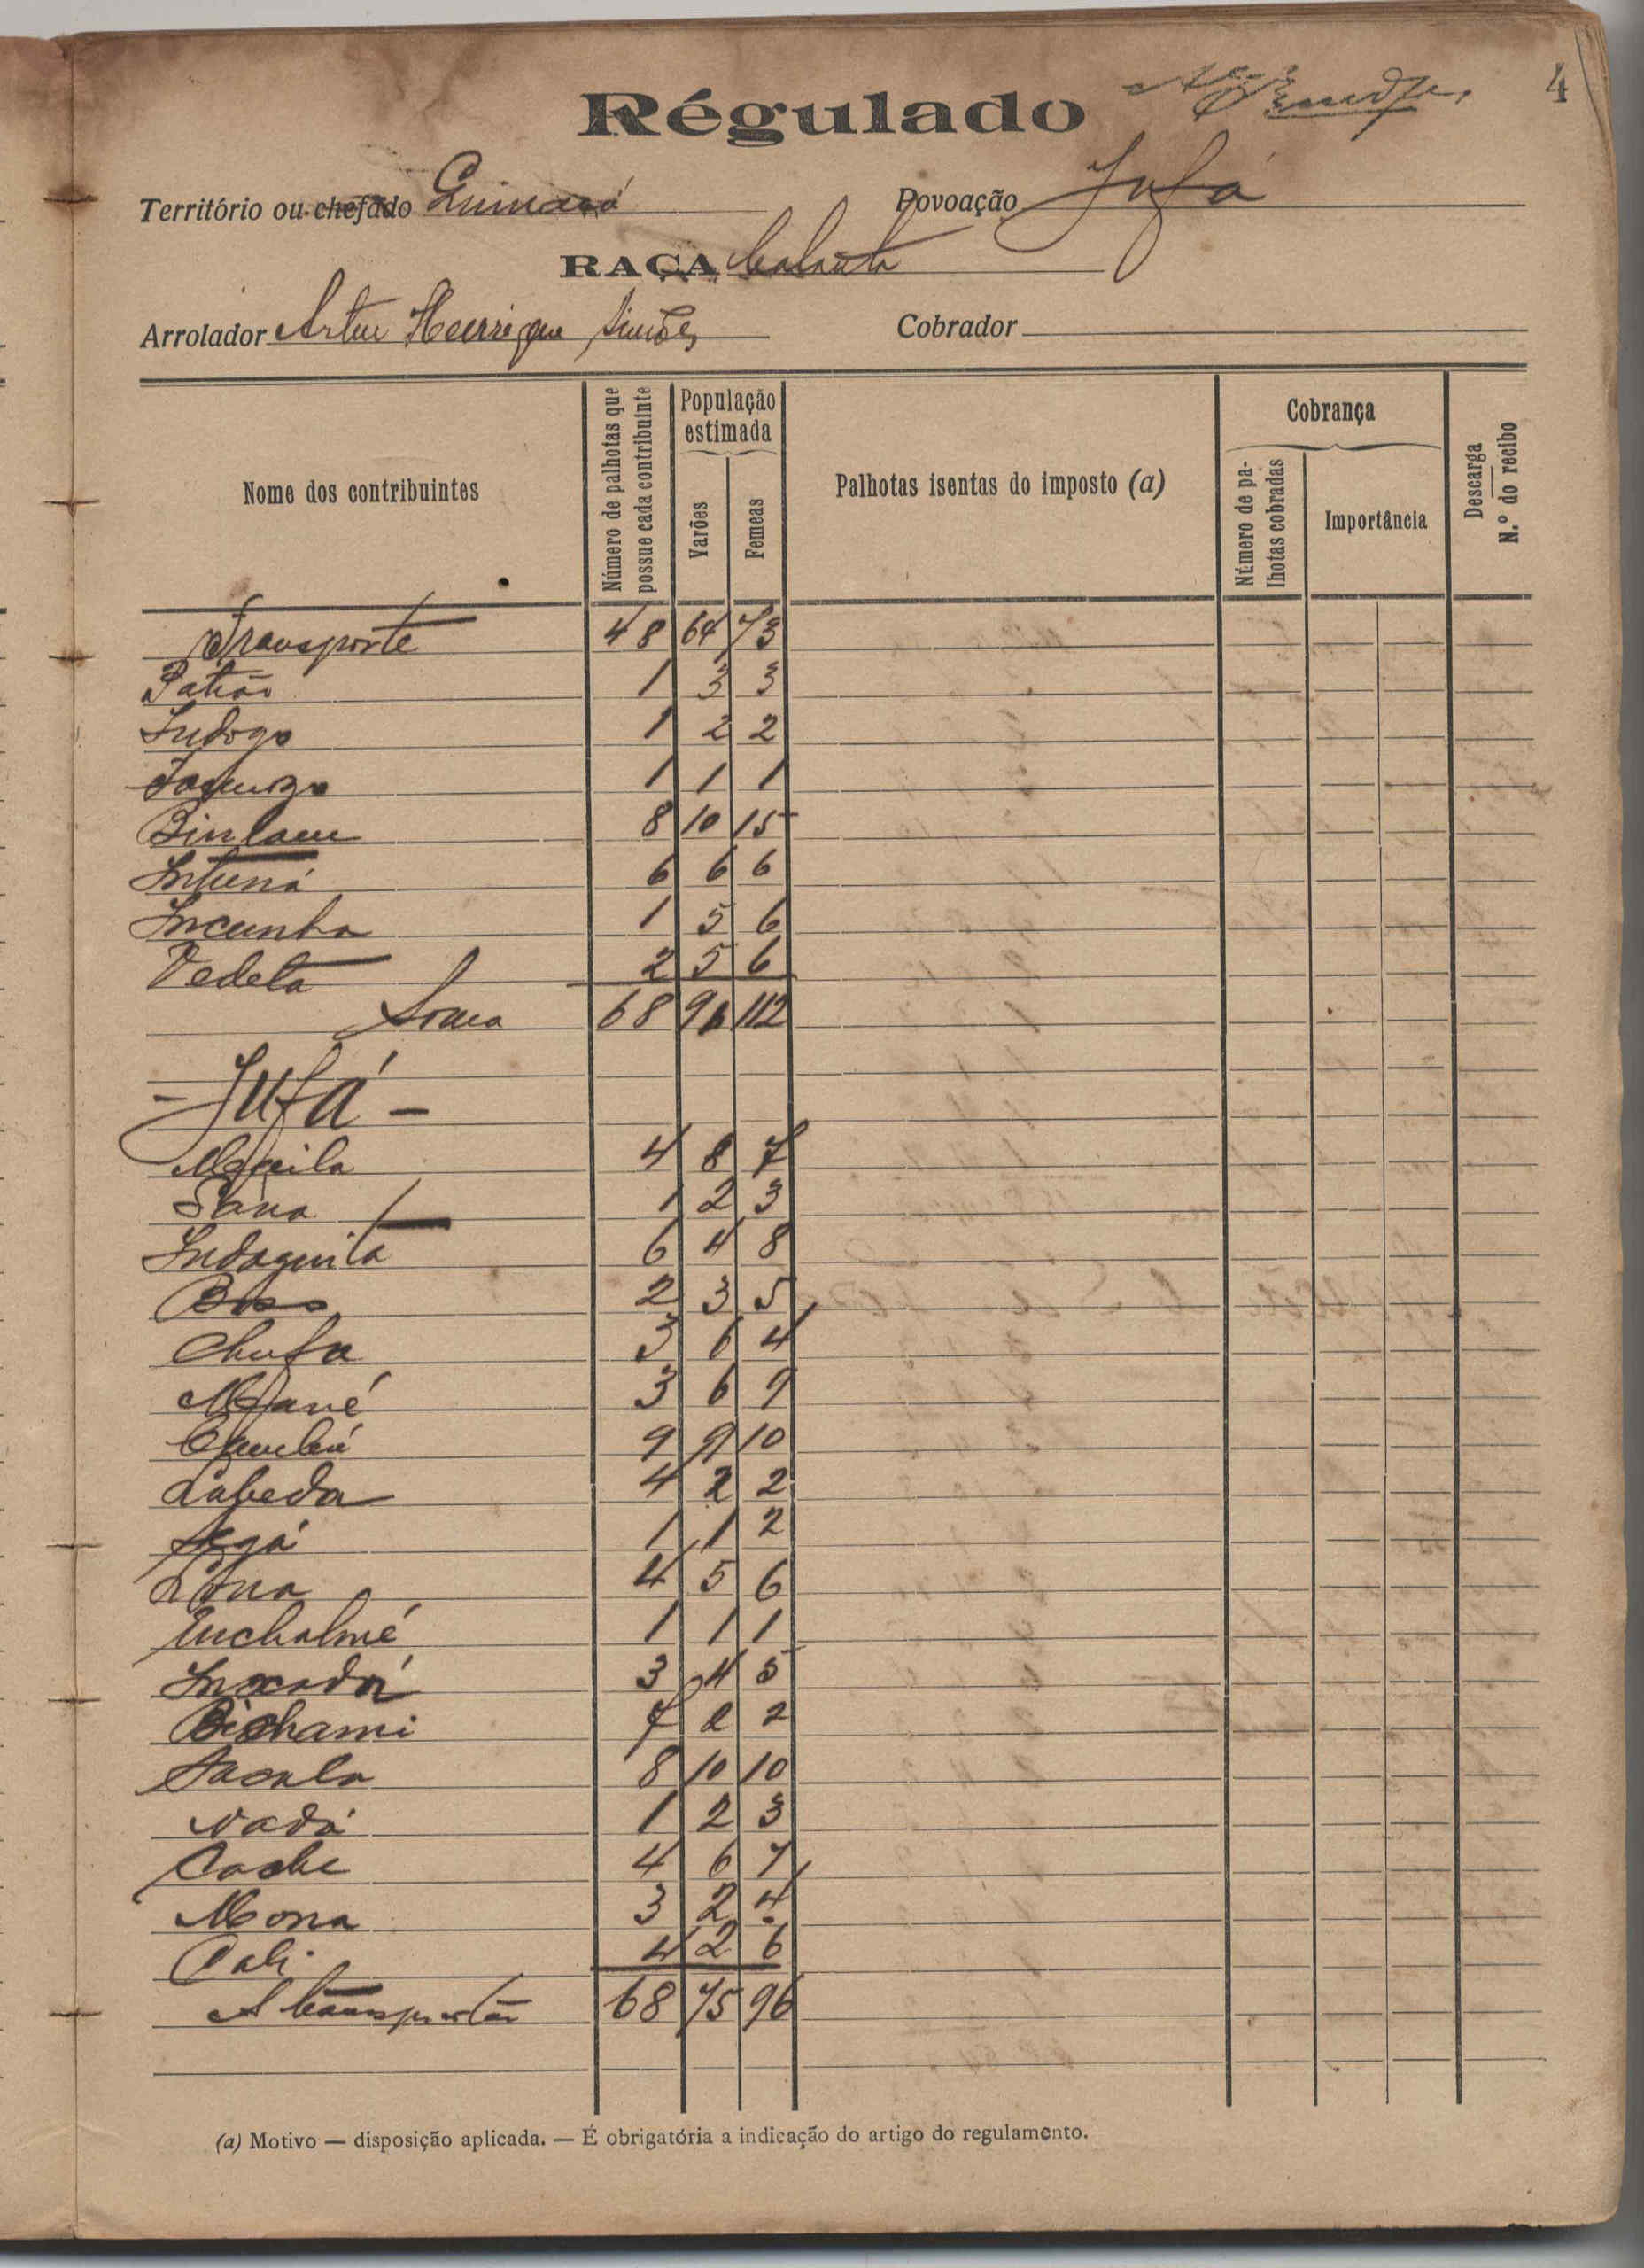 4
Régulado
Território ou chefado
Povoação Jufá
RAÇA balanta
Arrolador Artur Henrique Simões
Cobrador
Nome dos contribuintes
Número de palhotas que possue cada contribuinte
População estimada
Varões
Femeas
Palhotas isentas do imposto (a)
Cobrança
Número de palhotas cobradas
Importância
Descarga
N.º do recibo
Transporte 48 64 73
Patrão 1 3 3
Indogo 1 2 2
1 1 1
Binlam 8 10 15
Intuná 6 6 6
Incunha 1 5 6
Vedeta 2 5 6
Soma 68 96 112
- Jufá -
Mquila 4 8 7
Sana 1 2 3
Indaquita 6 4 8
Boso 2 3 5
Chufa 3 6 4
Mané 3 6 9
9 9 10
Labeda 4 2 2
Segá 1 1 2
Lona 4 5 6
Enchalmé 1 1 1
Incadá 3 4 5
Bichami 7 2 2
Sacala 8 10 10
Nadá 1 2 3
Cache 4 6 7
Mona 3 2 4
Cali 4 2 6
A transportar 68 75 96
(a) Motivo — disposição aplicada. — É obrigatória a indicação do artigo do regulamento.